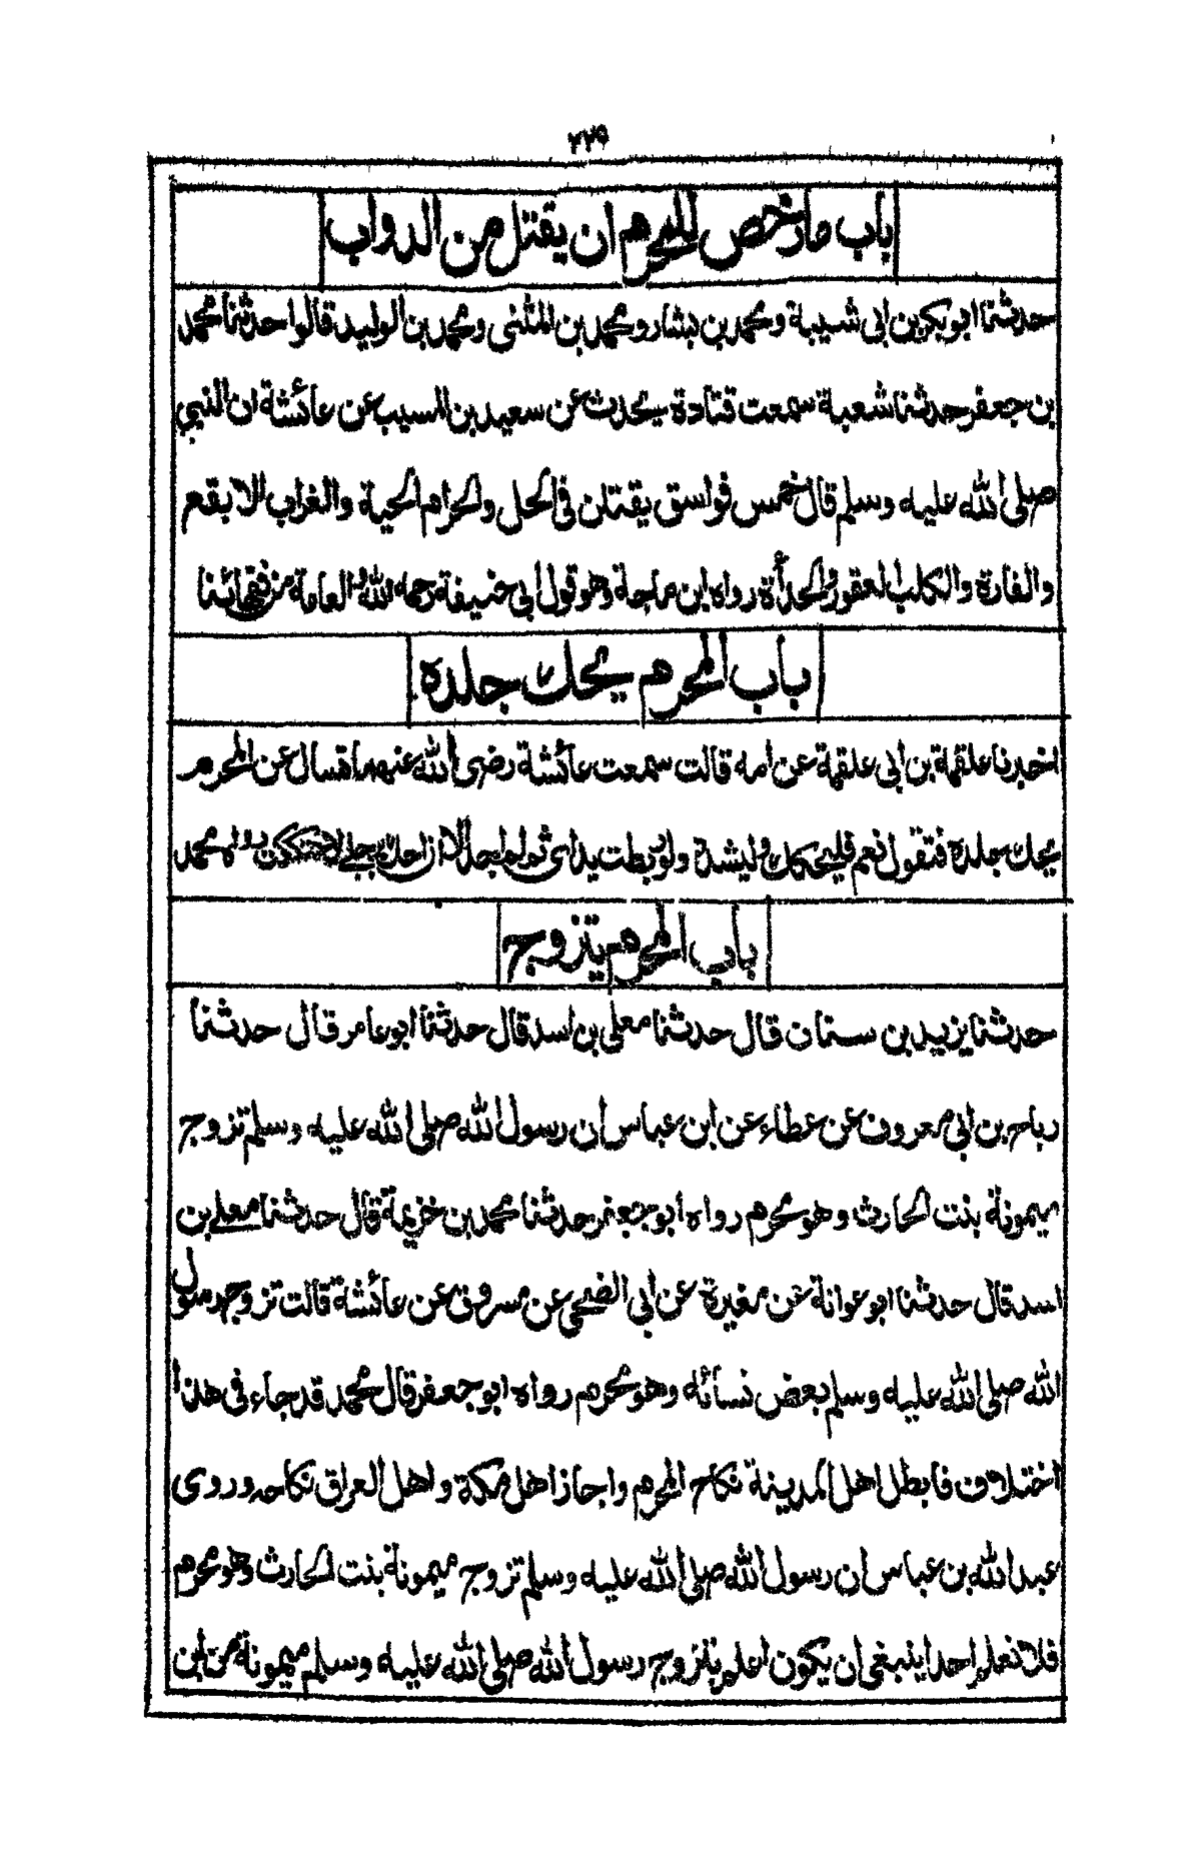 ٢٢٩
باب ما رخص للمحرم ان يقتل من الدواب
حدثنا ابو بكر بن ابى شيبة ومحمد بن بشار ومحمد بن المثنى ومحمد بن الوليد قالوا حدثنا محمد
بن جعفر حدثنا شعبة سمعت قتادة يحدث عن سعيد بن المسيب عن عائشة ان النبي
صلى الله عليه وسلم قال خمس فواسق يقتلن فى الحل والحرام الحية والغراب الابقع
والفارة والكلب العقور والحدأة رواه ابن ماجة وهو قول ابى حنيفة رحمه الله والعامة من فقهائنا
باب المحرم يحك جلده
اخبرنا علقمة بن ابى علقمة عن امه قالت سمعت عائشة رضى الله عنها تسال عن المحرم
يحك جلده فتقول نعم فليحكك وليشدد ولو ربطت يداى ثم لم اجد الا ان احك برجلى لاحتككت رواه محمد
باب المحرم يتزوج
حدثنا يزيد بن ستان قال حدثنا معلى بن اسد قال حدثنا ابو عامر قال حدثنا
رباح بن ابى معروف عن عطاء عن ابن عباس أن رسول الله صلى الله عليه وسلم تزوج
ميمونة بنت الحارث وهو محرم رواه ابو جعفر حدثنا محمد بن خزيمة قال حدثنا معلى بن
اسد قال حدثنا ابو عوانة عن مغيرة عن أبى الضحى عن مسروق عن عائشة قالت تزوج رسول
الله صلى الله عليه وسلم بعض نسائه وهو محرم رواه ابو جعفر قال محمد قد جاء فى هذا
اختلاف فابطل اهل المدينة نكاح المحرم واجاز اهل مكة واهل العراق نكاحه وروى
عبد الله بن عباس أن رسول الله صلى الله عليه وسلم تزوج ميمونة بنت الحارث وهو محرم
فلا نعلم احدا ينبغى ان يكون اعلم بتزوج رسول الله صلى الله عليه وسلم ميمونة من ابن